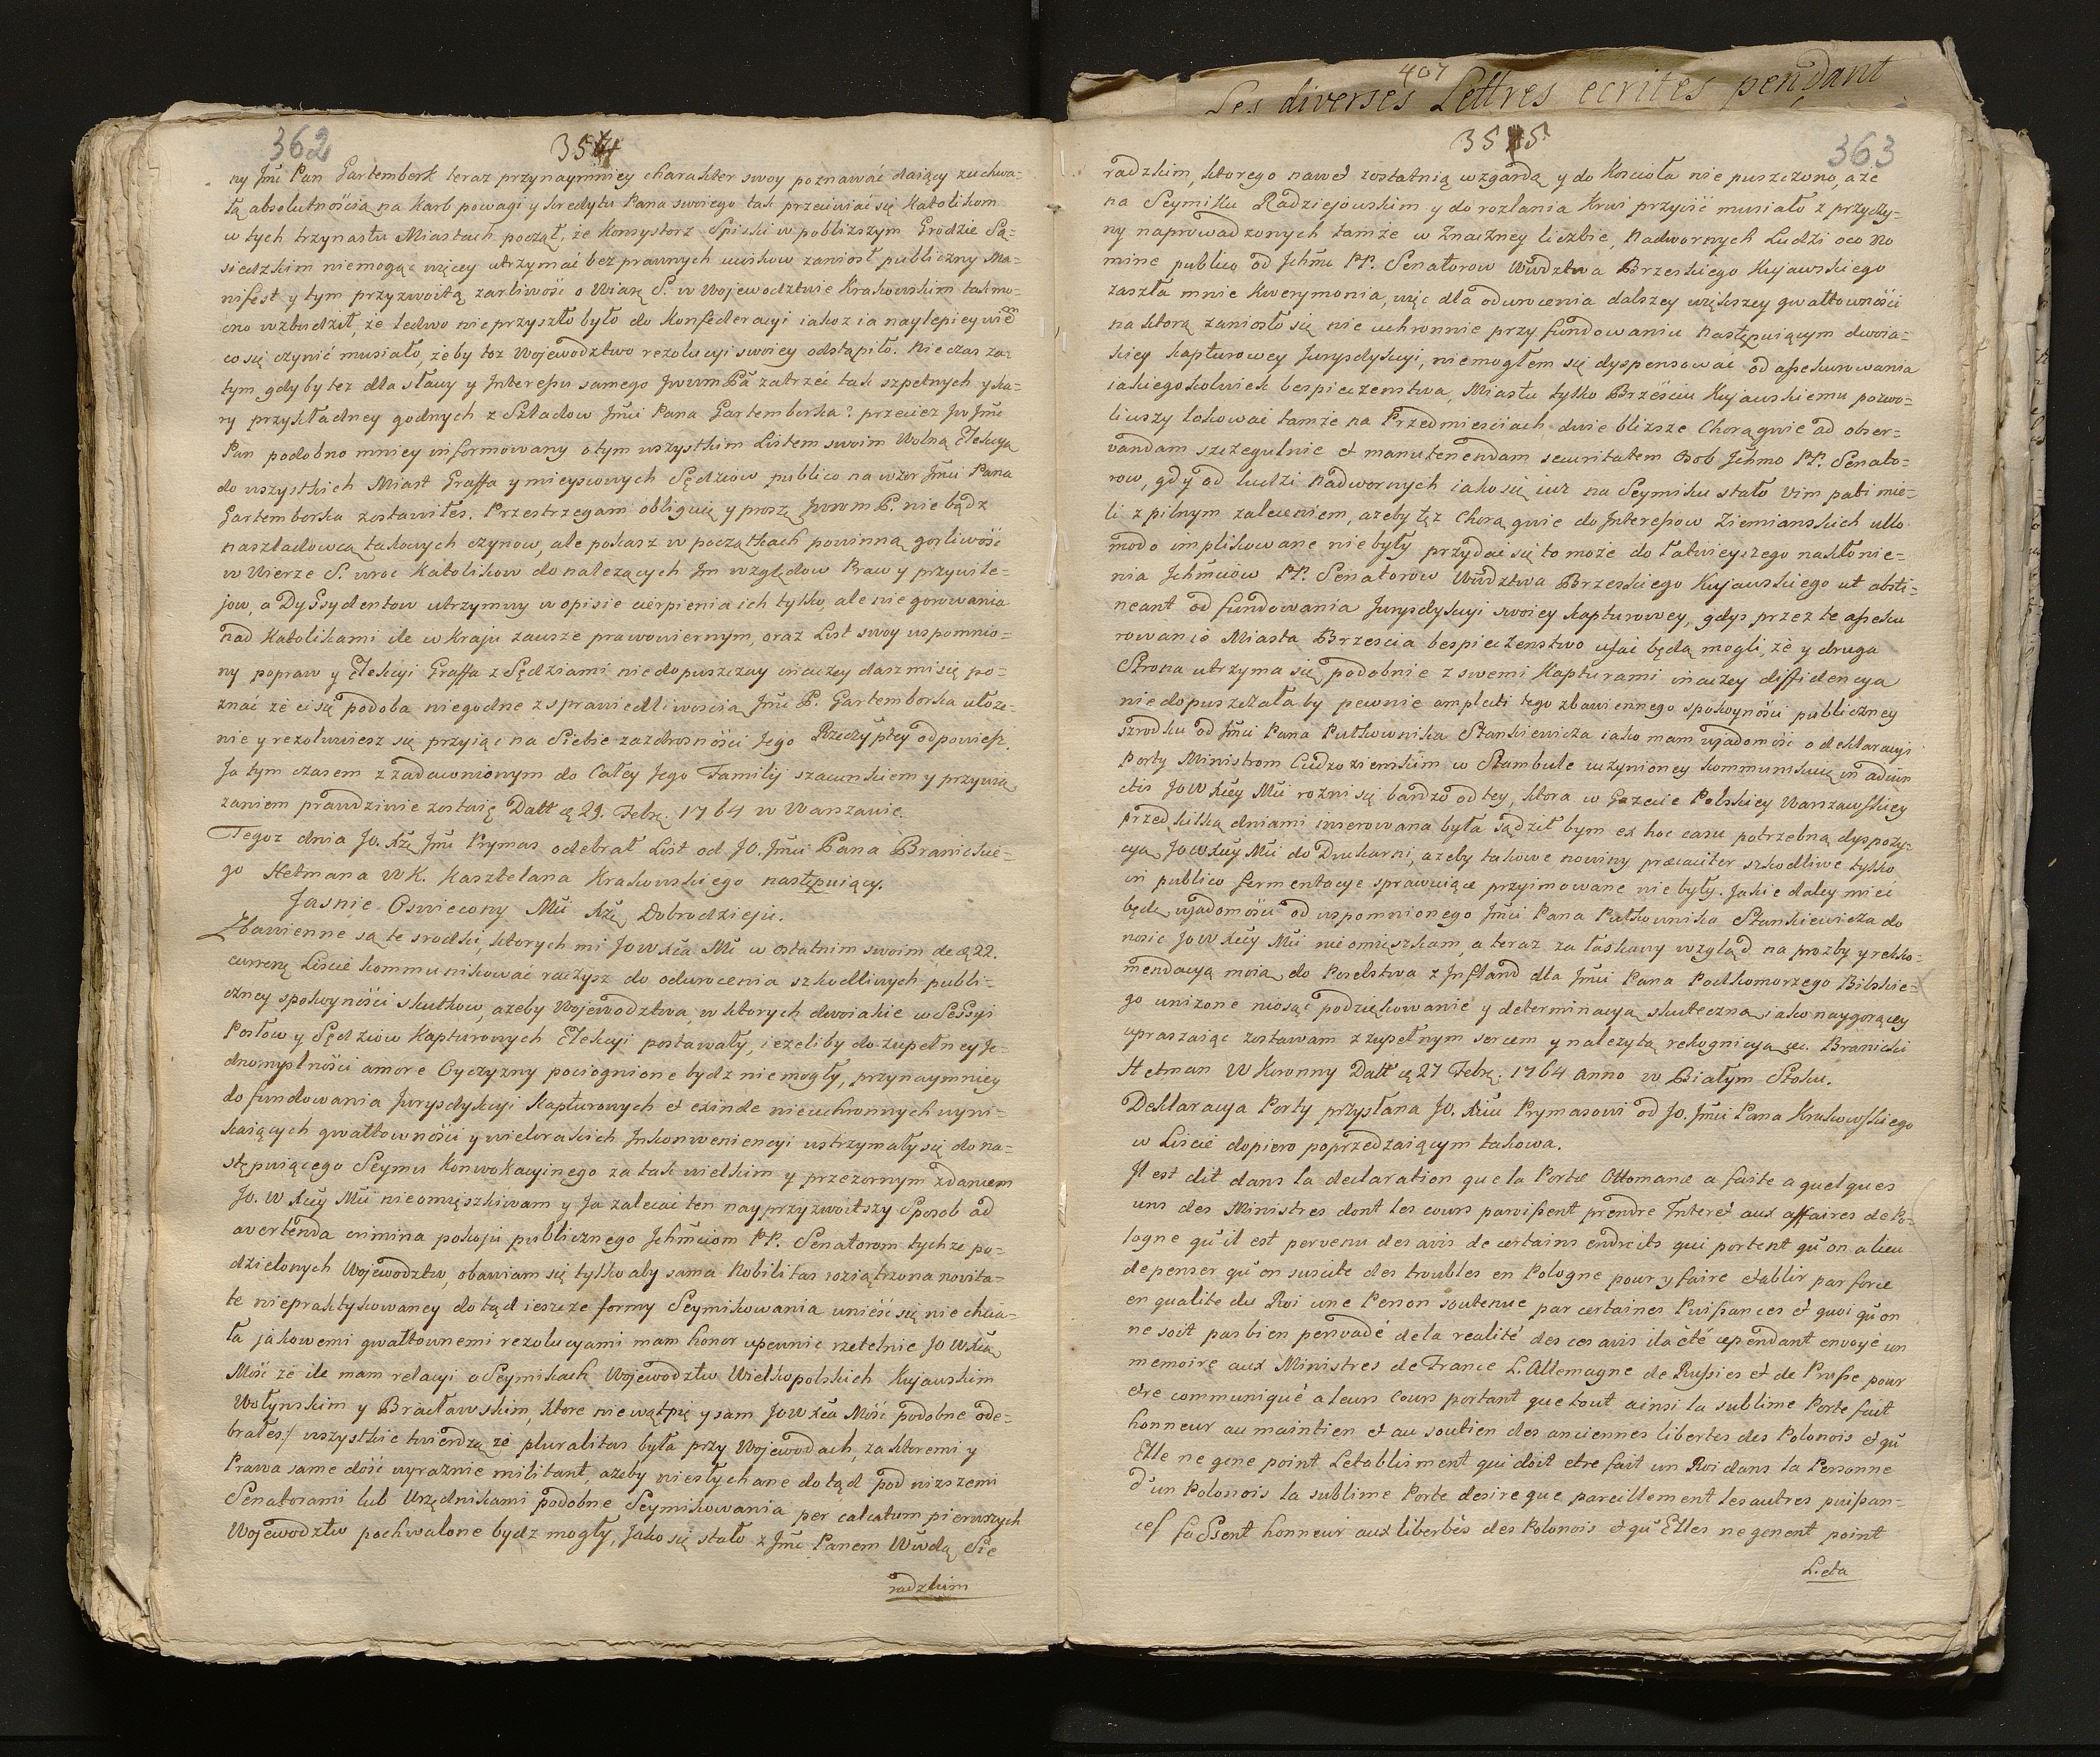 362
354
ny Jmć Pan Gartemberk teraz przynaymniey charakter swoy poznawać daiący zuchwa=
łą absolutnością na Karb powagi y kredytu Pana swoiego tak przeciwiać się Katolikom
w tych trzynastu Miastach począł, że Konsystorz Spiski w poblizszym Grodzie Są=
siedzkim niemogąc więcey utrzymać bezprawnych ucisków zaniosł publiczny Ma=
nifest y tym przyzwoitą zarliwość o Wiarę S. w Wojewodztwie Krakowskim tak mo=
cno wzbudził, że ledwo nie przyszło było do Konfederacyi iakoz ia naylepiey wiem
co się czynić musiało, żeby toz Wojewodztwo rezolucyi swoiey odstąpiło. Nie czas za=
tym gdyby tez dla sławy y Interessu samego JwwmPa zatrzeć tak szpetnych y ka=
ry przykładney godnych z Szladow Jmći Pana Gartemberka? przeciez Jw Jmć
Pan podobno mniey informowany o tym wszystkim Listem swoim Wolną Elekcyą
do wszystkich Miast Graffa y mieyscowych Sędziow publico na wzor Jmći Pana
Gartemberka zostawiłes. Przestrzegam obliguię y proszę JwwmP. nie bądz
naszladowcą takowych czynow, ale pokasz w początkach powinną gorliwość
w Wierze S. wroc Katolikow do nalezących Im względow Praw y przywile=
jow, a Dyssydentow utrzymuy w opisie cierpienia ich tylko, ale nie gorowania
nad Katolikami ile w kraju zawsze prawowiernym, oraz List swoy wspomnio=
ny popraw y Elekcyi Graffa z Sędziami nie dopuszczay inaczey dasz mi się po=
znać że ci się podoba niegodne z sprawiedliwoscią Jmći P. Gartemberka ułoze=
nie y rezolwuiesz się przyiąć na Siebie zazdrosności Jego Rzeczyptey odpowiesz.
Ja tym czasem z zadawnionym do Całey Jego Familij szacunkiem y przywią
zaniem prawdziwie zostaię Datt ą 29. Febr. 1764 w Warszawie.
Tegoz dnia Jo. Xże Jmć Prymas odebrał List od JO. Jmći Pana Branickie=
go Hetmana WK. Kasztelana Krakowskiego następuiący.
Jasnie Oswiecony Mći Xże Dobrodzieju.
Zbawienne są te srodki, ktorych mi JoWXca Mć w ostatnim swoim de ą 22.
curreną Liście kommunikować raczysz do odwrocenia szkodliwych publi=
czney spokoyności skutkow, azeby Wojewodztwa, w ktorych dwoiakie w Sessyi
Posłow y Sędziow Kapturowych Elekcyi postawały, iezeliby do zupełney Je=
dnomyslności amore Oyczyzny pociągnione bydz nie mogły, przynaymniey
do fundowania Jurysdykcyi Kapturowych et exinde nieuchronnych wyni=
kaiących gwałtowności y wielorakich Inkonweniencyi wstrzymały się do na=
stępuiącego Seymu Konwokacyinego za tak wielkim y przezornym zdaniem
Jo. W Xcey Mći nieomięszkiwam y Ja zalecać ten nayprzyzwoitszy Sposob ad
avertenda crimina pokoju publicznego Jchmciom PP. Senatorom tychze po=
dzielonych Wojewodztw, obawiam się tylko aby sama Nobilitas roziątrzona novita=
te niepraktykowaney do tąd ieszcze formy Seymikowania unieść się nie chcia=
ła jakowemi gwałtownemi rezolucyami mam honor upewnić rzetelnie JO WXcą
Mość że ile mam relacyi o Seymikach Wojewodztw Wielkopolskich Kujawskim
Wołynskim y Bracławskim, ktore nie wątpię y sam JoWXca Mość podobne ode=
brałes/ wszystkie twierdzą że pluralitas była przy Wojewodach, za ktoremi y
Prawa same dość wyraznie militant, azeby niesłychane do tąd pod nizszemi
Senatorami lub Urzędnikami podobne Seymikowania per calcatum pierwszych
Wojewodztw pochwalone bydz mogły, Jako się stało z Jmć Panem Wwdą Sie
radzkim
407
Les diverses Lettres ecrites pendant
3555
363
radzkim, ktorego nawet zostatnią wzgardą y do Koscioła nie puszczono, a że
na Seymiku Radziejowskim y do rozlania Krwi przyiść musiało z przyczy=
ny naprowadzonych tamże w Znaczney liczbie, Nadwornych Ludzi oco No
mine publico od Jchmć PP. Senatorow Wwdztwa Brzeskiego Kujawskiego
zaszła mnie Kwerymonia, więc dla odwrocenia dalszey większey gwałtowności
na ktorą zaniosło się nie uchronnie przy fundowaniu następuiącym dwoia=
kiey kapturowey Jurysdykcyi, niemogłem się dyspensować od assekurowania
iakiegokolwiek bespieczenstwa, Miastu tylko Brześciu Kujawskiemu pozwo=
liwszy lokować tamże na Przedmieściach dwie bliższe Chorągwie ad obser=
vandam szczegulnie et manutenendam securitatem Osob Jchmo PP. Senato=
row, gdy od ludzi nadwornych iako się iuz na Seymiku stało Vim pati mie=
li z pilnym zaleceniem, azeby też Chorągwie do Interessow Ziemianskich ullo
modo implikowane nie były przydać się to może do łatwieyszego nakłonie=
nia Jchmciow PP. Senatorow Wwdztwa Brzeskiego Kujawskiego ut absti=
neant od fundowania Jurysdykcyi swoiey kapturowey, gdys przez te asseku
rowanie Miasta Brzescia bespieczenstwo ufać będą mogli, że y druga
Strona utrzyma się podobnie z swemi Kapturami inaczey diffidencya
nie dopuszczałaby pewnie amplecti tego zbawiennego spokoyności publiczney
szrodku od Jmći Pana Pułkownika Stankiewicza iako mam wiadomość o deklaracyi
Porty Ministrom Cudzoziemskim w Stambule uczynioney kommunikuię in adiun
ctis JoWXcey Mći rozni się bardzo od tey, ktora w Gazecie Polskiey Warszawskiey
przed kilką dniami inserowana była sądził bym ex hoc casu potrzebną dyspozy=
cyą JoWXcey Mći do Drukarni, azeby takowe nowiny præcaciter szkodliwe tylko
in publico fermentacye sprawuiące przyimowane nie były. Jakie daley mieć
będę wiadomości od wspomnionego Jmći Pana Pułkownika Stankiewicza do
nosić JoWXcey Mći nieomieszkam, a teraz za łaskawy wzgląd na prozby y reko=
mendacyą moią do Poselstwa z Infland dla Jmći Pana Podkomorzego Bilskie=
go unizone niosąc podziękowanie y determinacyą skuteczną iako naygoręcey
upraszaiąc zostawam z zupełnym sercem y nalezytą rekognicyą etc. Branicki
Hetman W Koronny Datt ą 27 Febr. 1764 anno w Białym Stoku.
Deklaracya Porty przysłana Jo. Xciu Prymasowi od Jo. Jmći Pana Krakowskiego
w Liście dopiero poprzedzaiącym takowa.
Il est dit dans la declaration que la Porte Ottomane a faite a quelques
uns des Ministres dont les cours paroissent prendre Interet aux affaires de Po=
logne qu'il est pervenu des avis de certains endroits qui portent qu'on a lieu
de penser qu'on suscite des troubles en Pologne pour y faire etablir par force
en qualite du Roi une Person soutenue par certaines Puissances et quoi qu'on
ne soit pas bien persvadé de la realité des ces avis il a été cependant envoyé un
memoire aux Ministres de France L'Allemagne de Russies et de Prusse pour
etre communiqué a leurs Cours portant que tout ainsi la sublime Porte fait
honneur au maintien et au soutien des anciennes libertes des Polonois et qu
Elle ne gene point L'etablisment qui doit etre fait un Roi dans la Personne
d'un Polonois la sublime Porte desire que pareillement les autres puissan=
ces fassent honneur aux libertés des Polonois et qu'Elles ne genent point
L'eta